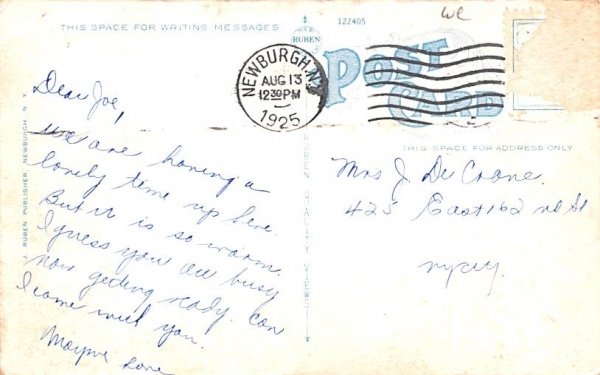 THIS SPACE FOR WRITING MESSAGES
122405
WC
RUBEN
POST
CARD
NEWBURGH, N.Y.
AUG 13
12 30 PM
1925
J. RUBEN PUBLISHER, NEWBURGH, N. Y.
Dear Joe,
We are having a
lonely time up here.
But it is so warm.
I guess you are busy
now getting ready. Can
I come with you.
Love
THIS SPACE FOR ADDRESS ONLY
Mrs J. De Crane.
425 East 162 nd St
nycity.